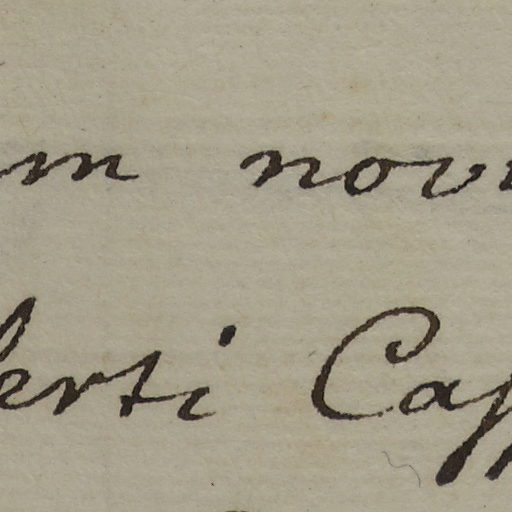 m nov
erti Cap